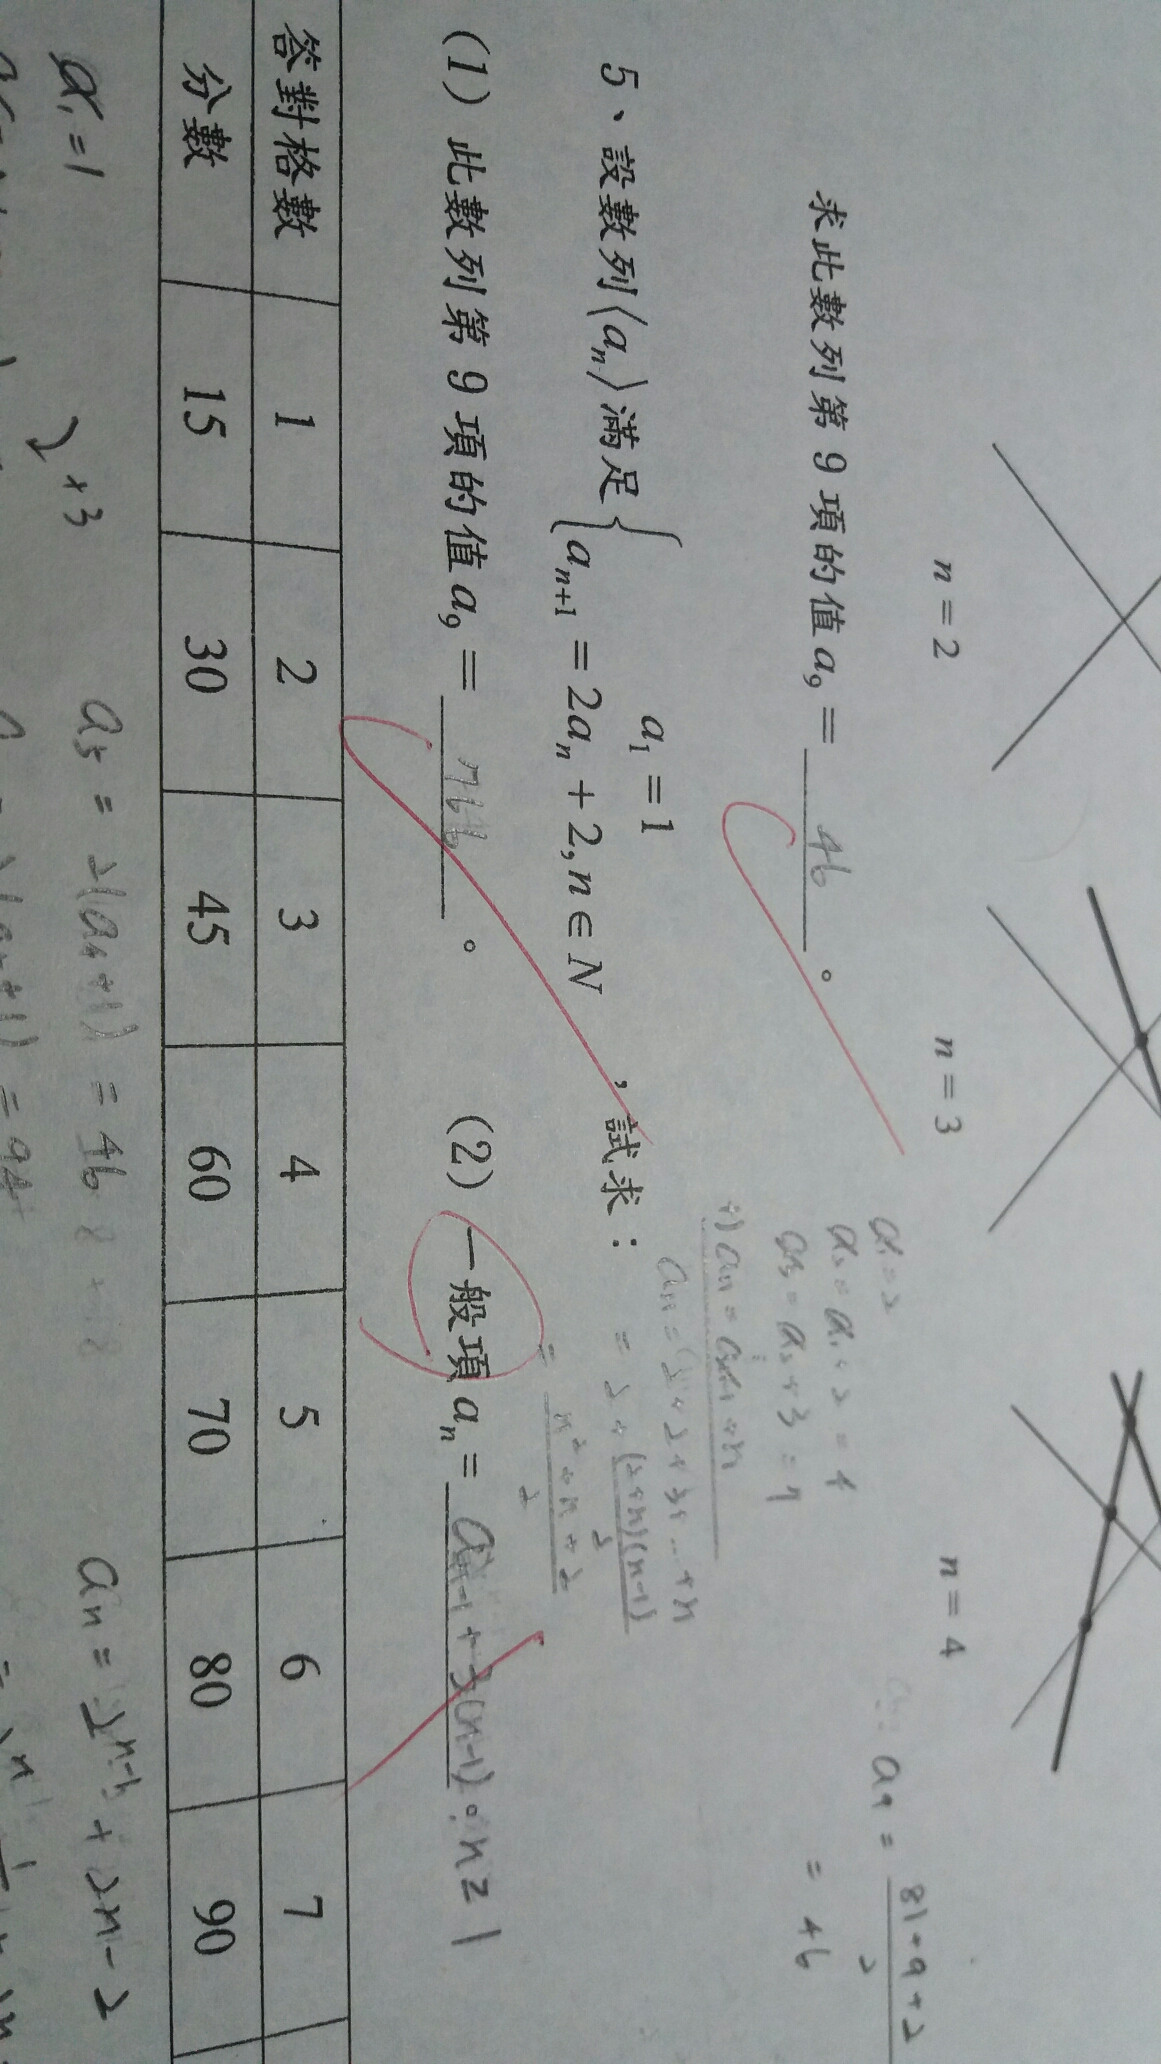 n = 2
n = 3
n = 4
求此數列第 9 項的值 a₉ = 46 。
a₁=2
a₂ = a₁+2 = 4
a₃ = a₂+3 = 7
aₙ = aₙ₋₁+n
aₙ = 2+2+3+…+n
= 2+ (2+n)(n-1)/2
= n²+n+2/2
a₉ = 81+9+2/2
= 46
5、設數列⟨aₙ⟩滿足{ a₁ = 1
aₙ₊₁ = 2aₙ + 2, n ∈ N ,試求:
(1) 此數列第 9 項的值 a₉ = 766 。 (2) 一般項 aₙ = aₙ₋₁+3(n-1) 。 n≥1
答對格數 1 2 3 4 5 6 7
分數 15 30 45 60 70 80 90
a₁=1
+3
a₅ = 2(a₄+1) = 46
= 94